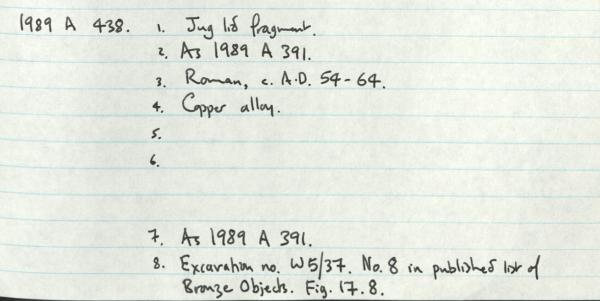 1989 A 438. 1. Jug lid fragment.
2. As 1989 A 391.
3. Roman, c. A.D. 54-64.
4. Copper alloy.
5.
6.
7. As 1989 A 391.
8. Excavation no. W5/37. No. 8 in published list of
Bronze Objects. Fig. 17.8.